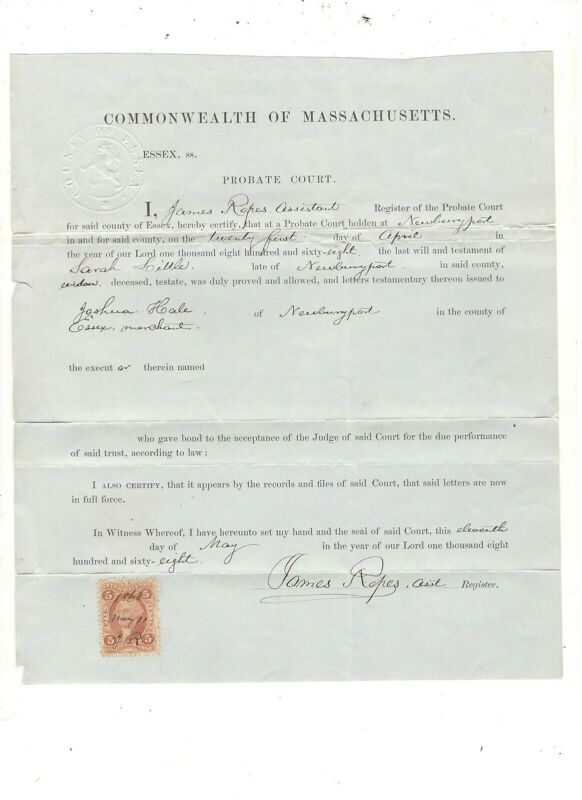 COUNTY OF ESSEX
COMMONWEALTH OF MASSACHUSETTS.
ESSEX, ss.
PROBATE COURT.
I, James Ropes. Assistant Register of the Probate Court
for said county of Essex, hereby certify, that at a Probate Court holden at Newburyport
in and for said county, on the twenty first day of April in
the year of our Lord one thousand eight hundred and sixty-eight the last will and testament of
Sarah Little. late of Newburyport. in said county,
widow deceased, testate, was duly proved and allowed, and letters testamentary thereon issued to
Joshua Hale. of Newburyport in the county of
Essex, merchant.
the execut or therein named
who gave bond to the acceptance of the Judge of said Court for the due performance
of said trust, according to law;
I ALSO CERTIFY, that it appears by the records and files of said Court, that said letters are now
in full force.
In Witness Whereof, I have hereunto set my hand and the seal of said Court, this eleventh
day of May in the year of our Lord one thousand eight
hundred and sixty-eight.
James Ropes. Asst Register.
5 5
1868
May 11
J R
5 5